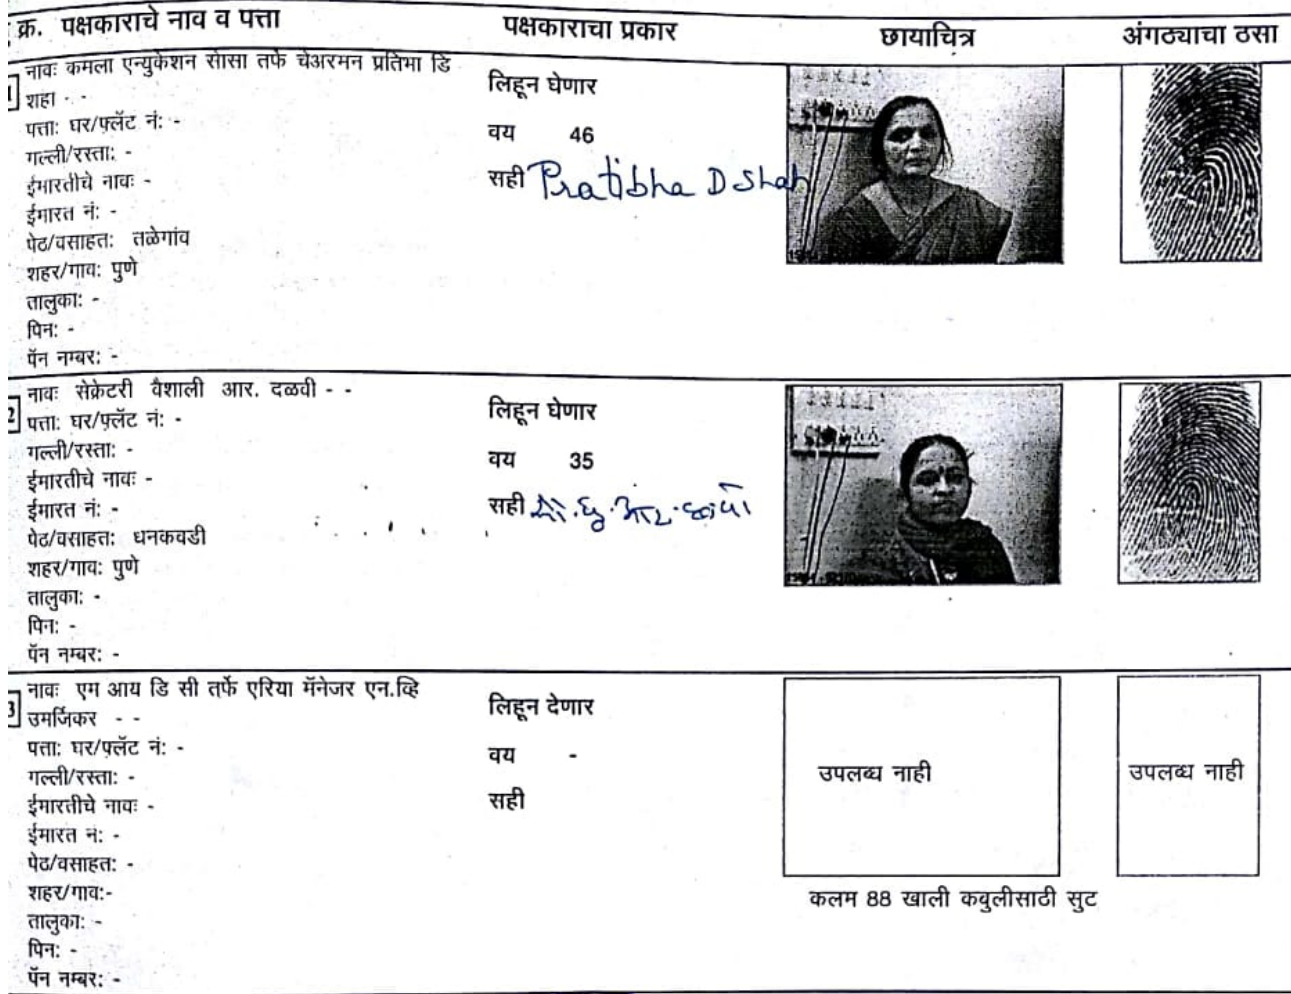 क्र. पक्षकाराचे नाव व पत्ता पक्षकाराचा प्रकार छायाचित्र अंगठ्याचा ठसा
1 नावः कमला एन्युकेशन सोसा तफे चेअरमन प्रतिभा डि
शहा - -
पत्ता: घर/फ्लॅट नं: -
गल्ली/रस्ता: -
ईमारतीचे नावः -
ईमारत नं: -
पेठ/वसाहत: तळेगांव
शहर/गाव: पुणे
तालुका: -
पिन: -
पॅन नम्बर: -
लिहून घेणार
वय 46
सही Pratibha D Shah
2 नावः सेक्रेटरी वैशाली आर. दळवी - -
पत्ता: घर/फ्लॅट नं: -
गल्ली/रस्ता: -
ईमारतीचे नावः -
ईमारत नं: -
पेठ/वसाहत: धनकवडी
शहर/गाव: पुणे
तालुका: -
पिन: -
पॅन नम्बर: -
लिहून घेणार
वय 35
सही
3 नावः एम आय डि सी तर्फे एरिया मॅनेजर एन.व्हि
उमर्जिकर - -
पत्ता: घर/फ्लॅट नं: -
गल्ली/रस्ता: -
ईमारतीचे नावः -
ईमारत नं: -
पेठ/वसाहत: -
शहर/गाव:-
तालुका: -
पिन: -
पॅन नम्बर: -
लिहून देणार
वय -
सही
उपलब्ध नाही उपलब्ध नाही
कलम 88 खाली कबुलीसाठी सुट